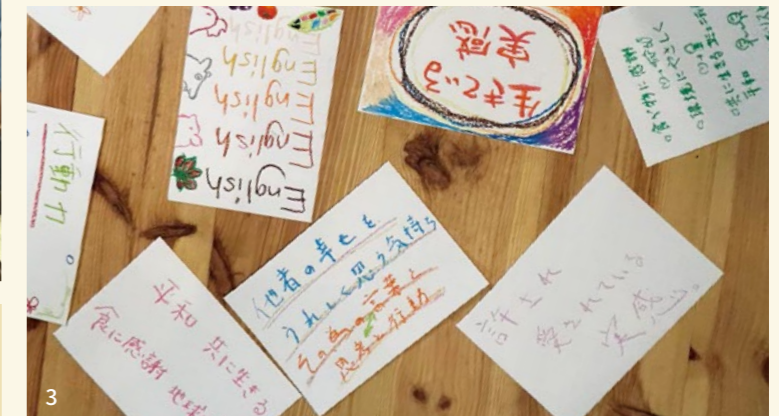 English
English
English
English
English
生きている
実感
行動力
平和 共に生きる
食に感謝 地球
他者の幸せを
うれしく思う気持ち
その為の言葉と
思考と行動
許され
愛されている
実感。
3